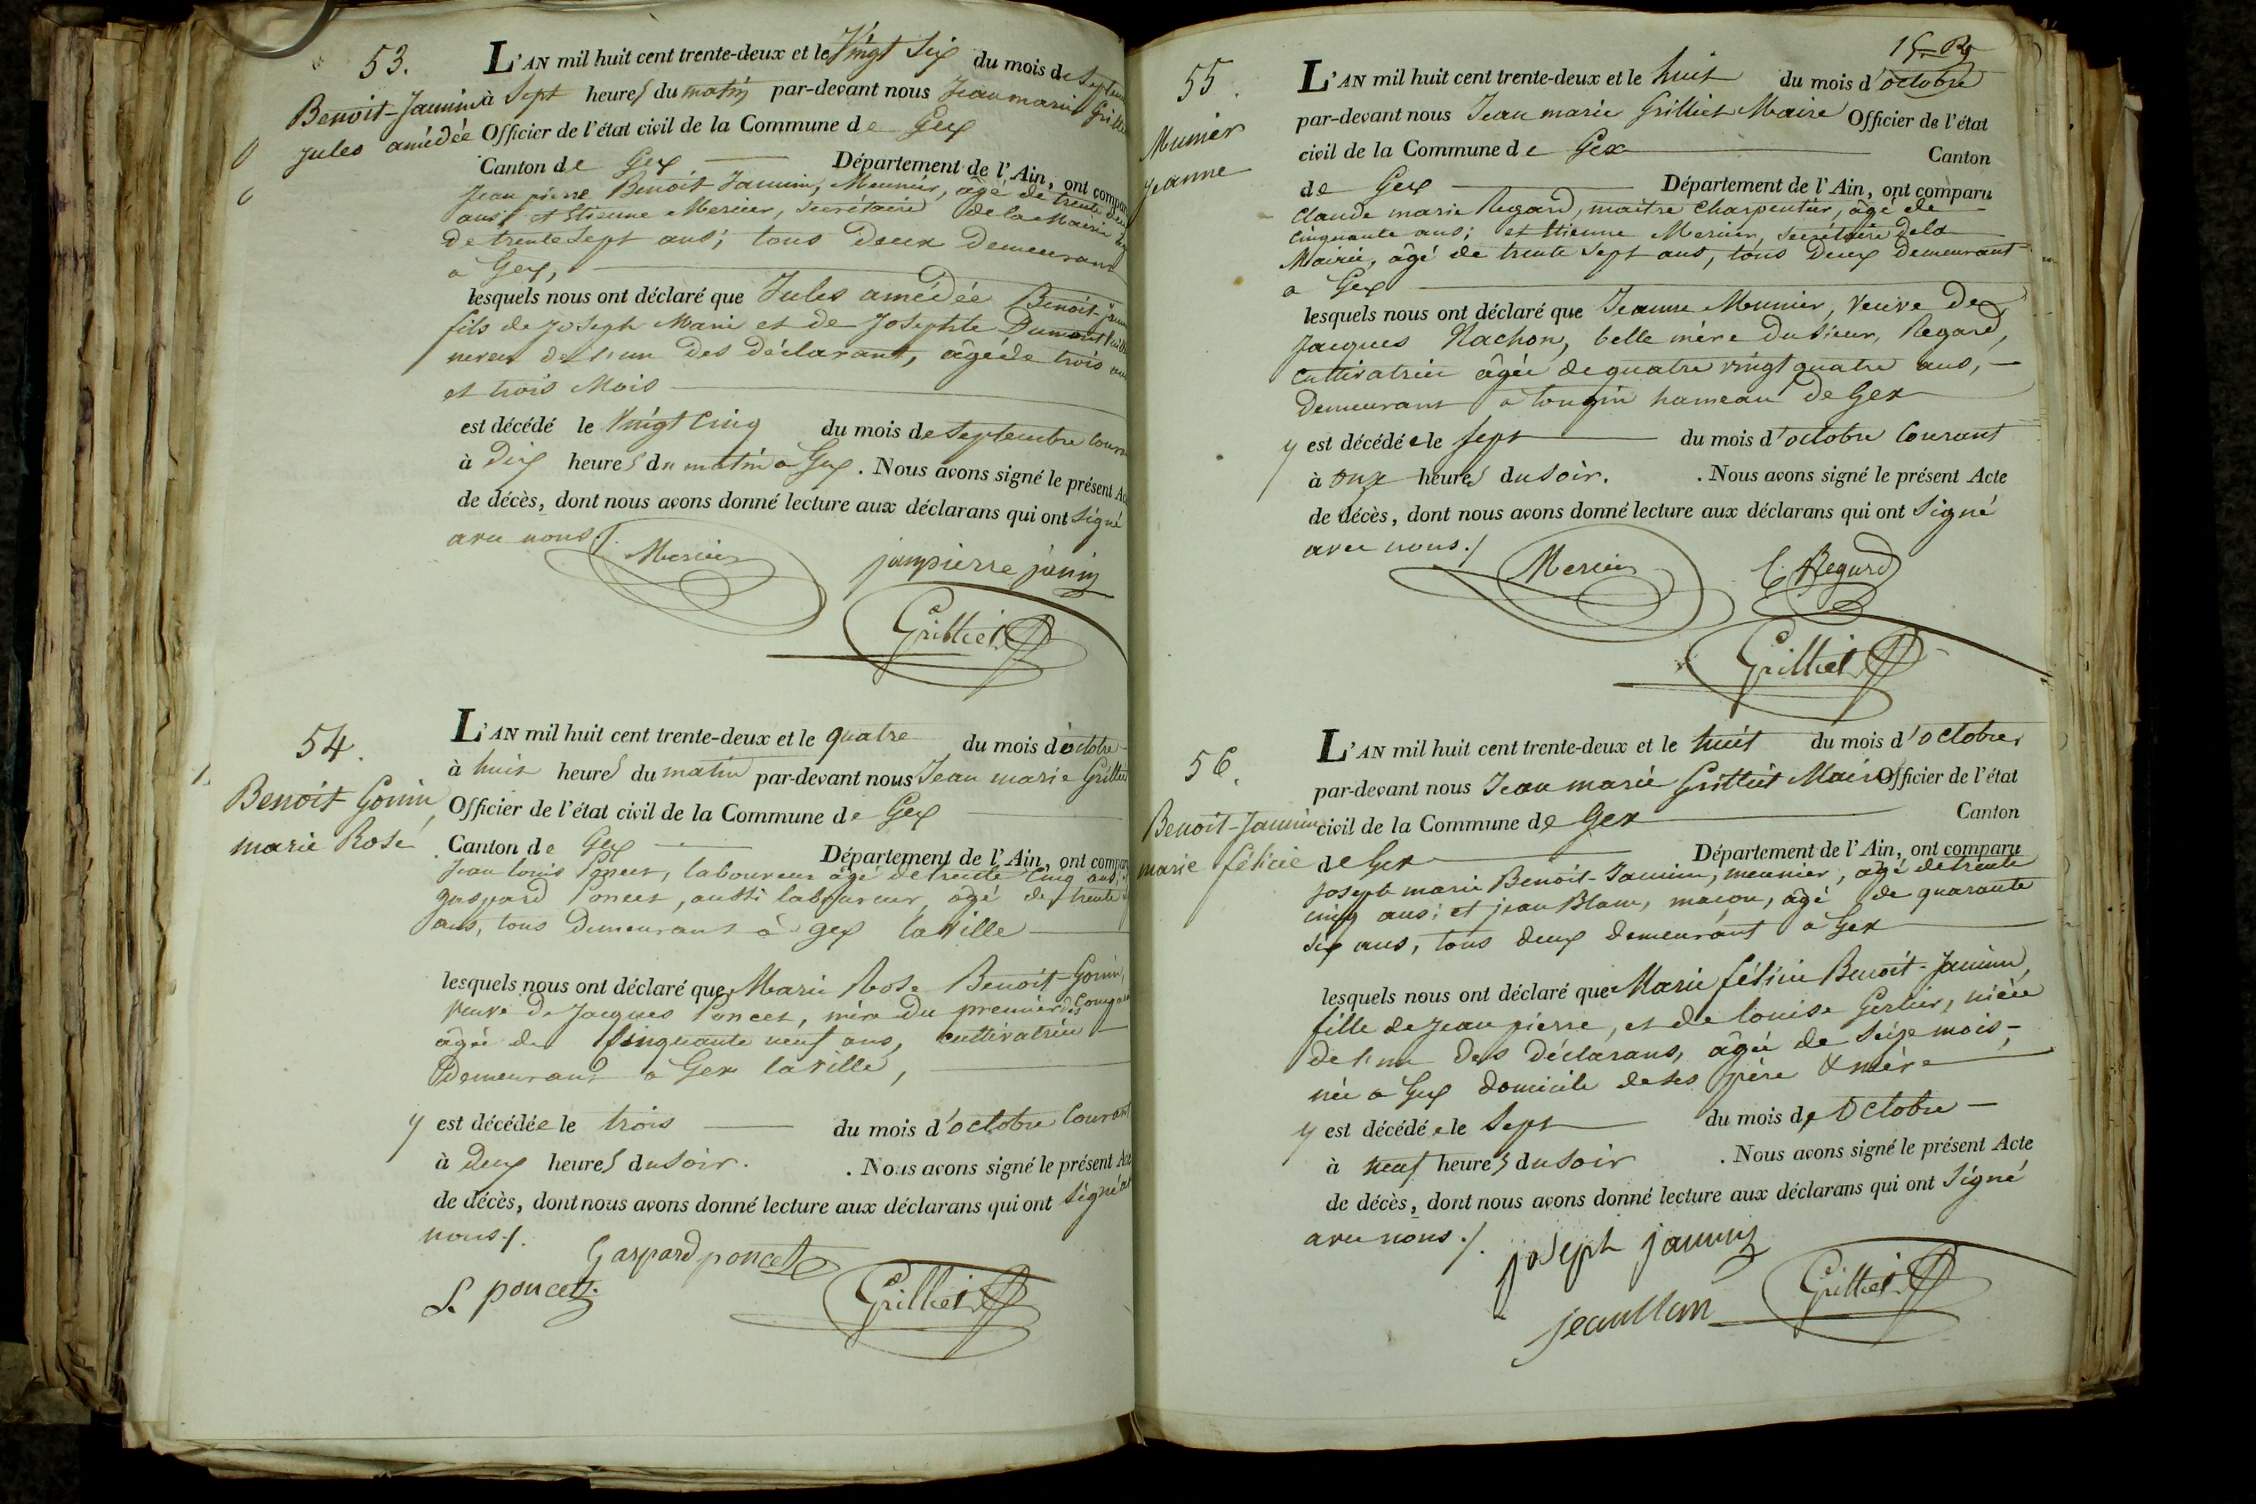 53.
Benoit-Jannin
Jules amédée
L'AN mil huit cent trente-deux et le Vingt Six du mois de Septem
à Sept heures du matin par-devant nous Jean marie Grillie
Officier de l'état civil de la Commune de Gex
Canton de Gex Département de l'Ain, ont compar
Jean pierre Benoit Jannin, Meunier, âgé de trente deux
ans; et Etienne Mercier, secrétaire de la Mairie âgé
de trente sept ans; tous deux demeurant
a Gex,
lesquels nous ont déclaré que Jules amédée Benoit-jann
fils de Joseph Marie et de Josephte Dumont
neveu de l'un des déclarant, âgé de trois ans
et trois Mois
est décédé le Vingt Cinq du mois de Septembre Coura
à Dix heures du matin a Gex. Nous avons signé le présent Ac
de décès, dont nous avons donné lecture aux déclarans qui ont Signé
avec nous./.
Mercier
janpierre janin
Grilliet
54.
Benoit Gonin,
marie Rose
L'AN mil huit cent trente-deux et le quatre du mois d'octobre
à huit heures du matin par-devant nous Jean marie Grilliet
Officier de l'état civil de la Commune de Gex
Canton de Gex Département de l'Ain, ont compar
Jean Louis Poncet, laboureur âgé de trente Cinq ans,
gaspard Poncet, aussi laboureur, âgé de trente
ans, tous Demeurant à gex la Ville
lesquels nous ont déclaré que Marie Rose Benoit-Gonin,
Veuve de Jacques Poncet, mère du premier des Compar
âgée de Cinquante neuf ans, cultivatrice
Demeurant a Gex la ville,
y est décédée le trois du mois d'octobre Courant
à Deux heures du Soir. . Nous avons signé le présent Acte
de décès, dont nous avons donné lecture aux déclarans qui ont Signé av
nous./.
Gaspard poncet
L. poncet
Grilliet
15. Rg
55.
Munier
Jeanne
L'AN mil huit cent trente-deux et le huit du mois d'octobre
par-devant nous Jean marie Grilliet Maire Officier de l'état
civil de la Commune de Gex Canton
de Gex Département de l'Ain, ont comparu
Claude marie Regard, maître Charpentier, âgé de
Cinquante ans; et Etienne Mercier, Secrétaire de la
Mairie, âgé de trente sept ans, tous Deux Demeurant
a Gex
lesquels nous ont déclaré que Jeanne Meunier, Veuve de
Jacques Nachon, belle mère du Sieur, Regard,
Cultivatrice âgée de quatre vingt quatre ans,
Demeurant a tougin hameau de Gex
y est décédée le Sept du mois d'octobre Courant
à onze heures du Soir. . Nous avons signé le présent Acte
de décès, dont nous avons donné lecture aux déclarans qui ont Signé
avec nous./
Mercier
C. Regard
Grilliet
56.
Benoit-Jannin
marie félicie
L'AN mil huit cent trente-deux et le huit du mois d'octobre,
par-devant nous Jean marie Grilliet Maire Officier de l'état
civil de la Commune de Gex Canton
de Gex Département de l'Ain, ont comparu
Joseph marie Benoit Jannin, meunier, âgé de trente
cinq ans; et jean Blanc, maçon, âgé de quarante
Six ans, tous deux demeurant a Gex
lesquels nous ont déclaré que Marie félicie Benoit-Jannin,
fille de Jean pierre, et de louise Gerlier, nièce
de l'un des déclarans, âgée de Seize mois,
née a Gex domicile de ses père & mère
y est décédée le Sept du mois de Octobre
à neuf heures du Soir . Nous avons signé le présent Acte
de décès, dont nous avons donné lecture aux déclarans qui ont Signé
avec nous./.
joseph jannin
Grilliet